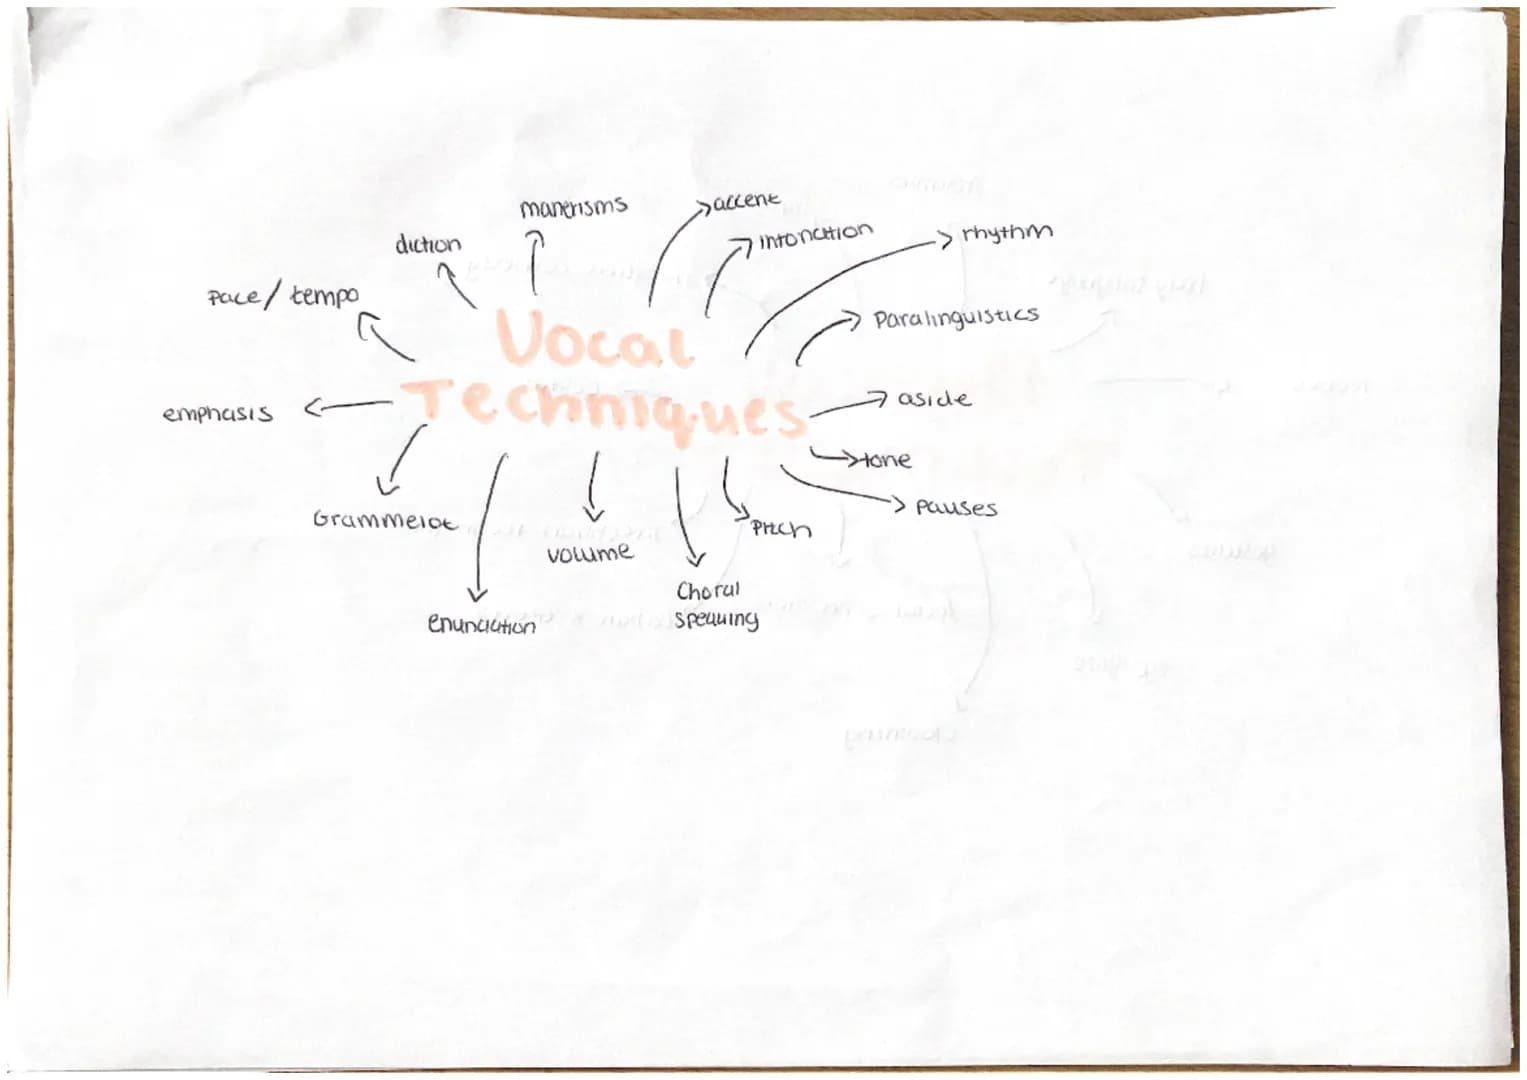 manerisms
accent
diction
intonation
rhythm
pace/ tempo
Paralinguistics
Vocal
Techniques
emphasis
aside
tone
pauses
Grammelot
Pitch
volume
Choral
speaking
enunciation